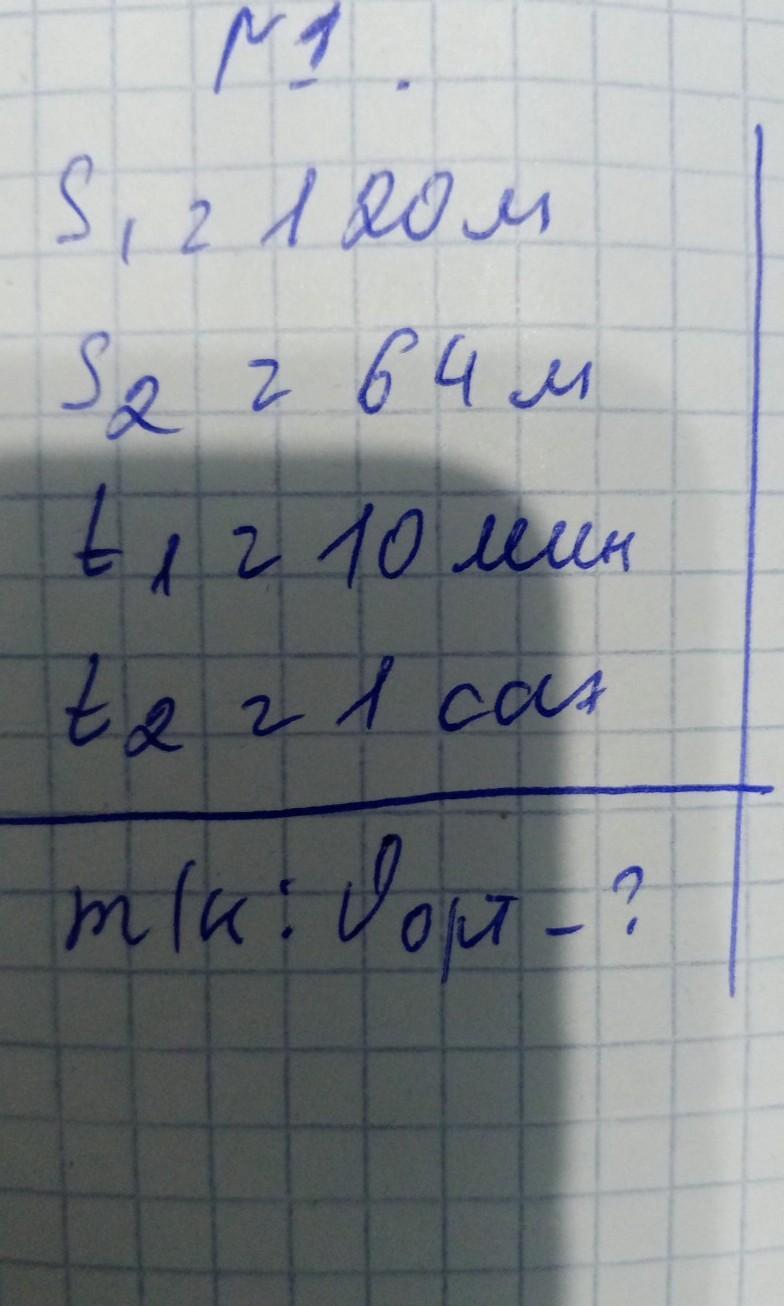 №1.
S₁ = 120 м
S₂ = 64 м
t₁ = 10 мин
t₂ = 1 сағ
т/к: υорт - ?